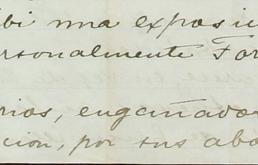 bi una exposi
ersonalmente For
rios, engañado
cion, por sus abo